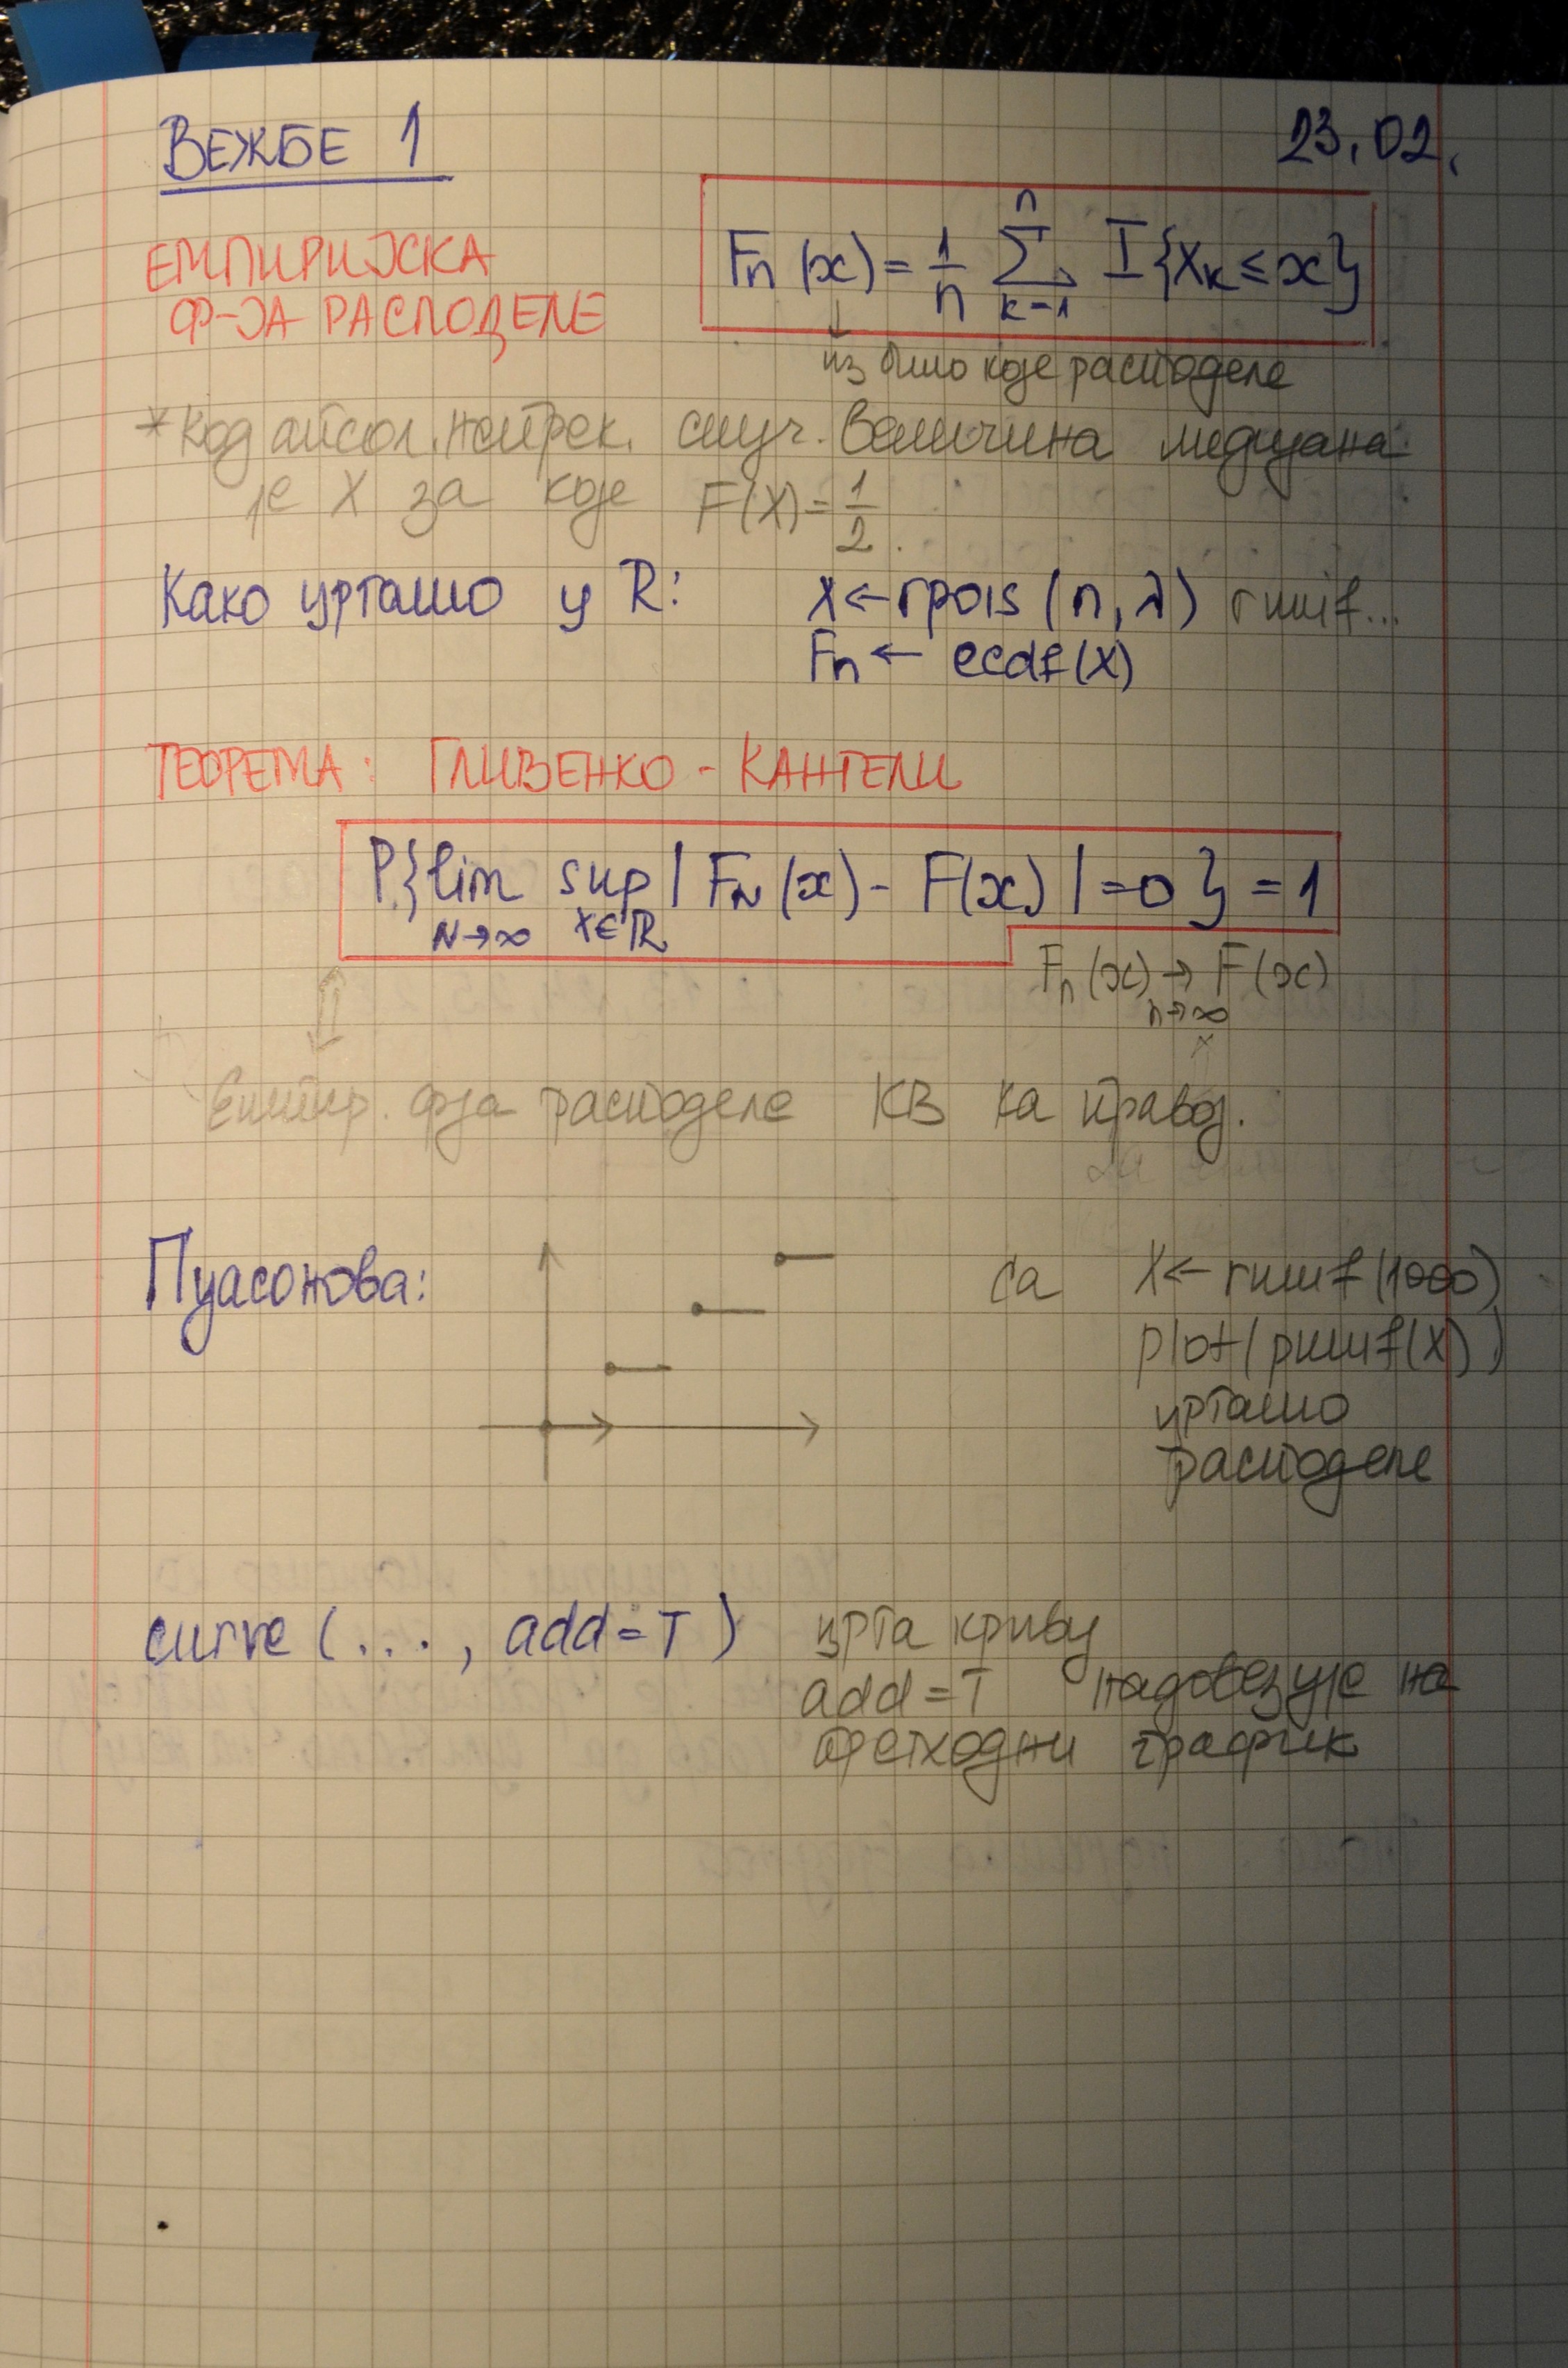 ВЕЖБЕ 1
23.02.
ЕМПИРИЈСКА
Ф-ЈА РАСПОДЕЛЕ
Fn(x) = 1/n ∑_{k=1}^{n} I{Xk ≤ x}
↓
из било које расподеле
* Код апсол. непрек. случ. величина медијана
је X за које F(X) = 1/2.
Како цртамо у R: X ← rpois (n, λ) runif...
Fn ← ecdf(X)
ТЕОРЕМА: ГЛИВЕНКО - КАНТЕЛИ
P{lim_{N→∞} sup_{X∈ℝ} | F_N(x) - F(x) | = 0} = 1
Fn(x) →_{n→∞} F(x)
⇕
Емпир. фја расподеле КВ ка правој.
Пуасонова:
са X ← runif(1000)
plot(punif(X))
цртамо
расподеле
curve (..., add=T) црта криву
add=T надовезује на
претходни график